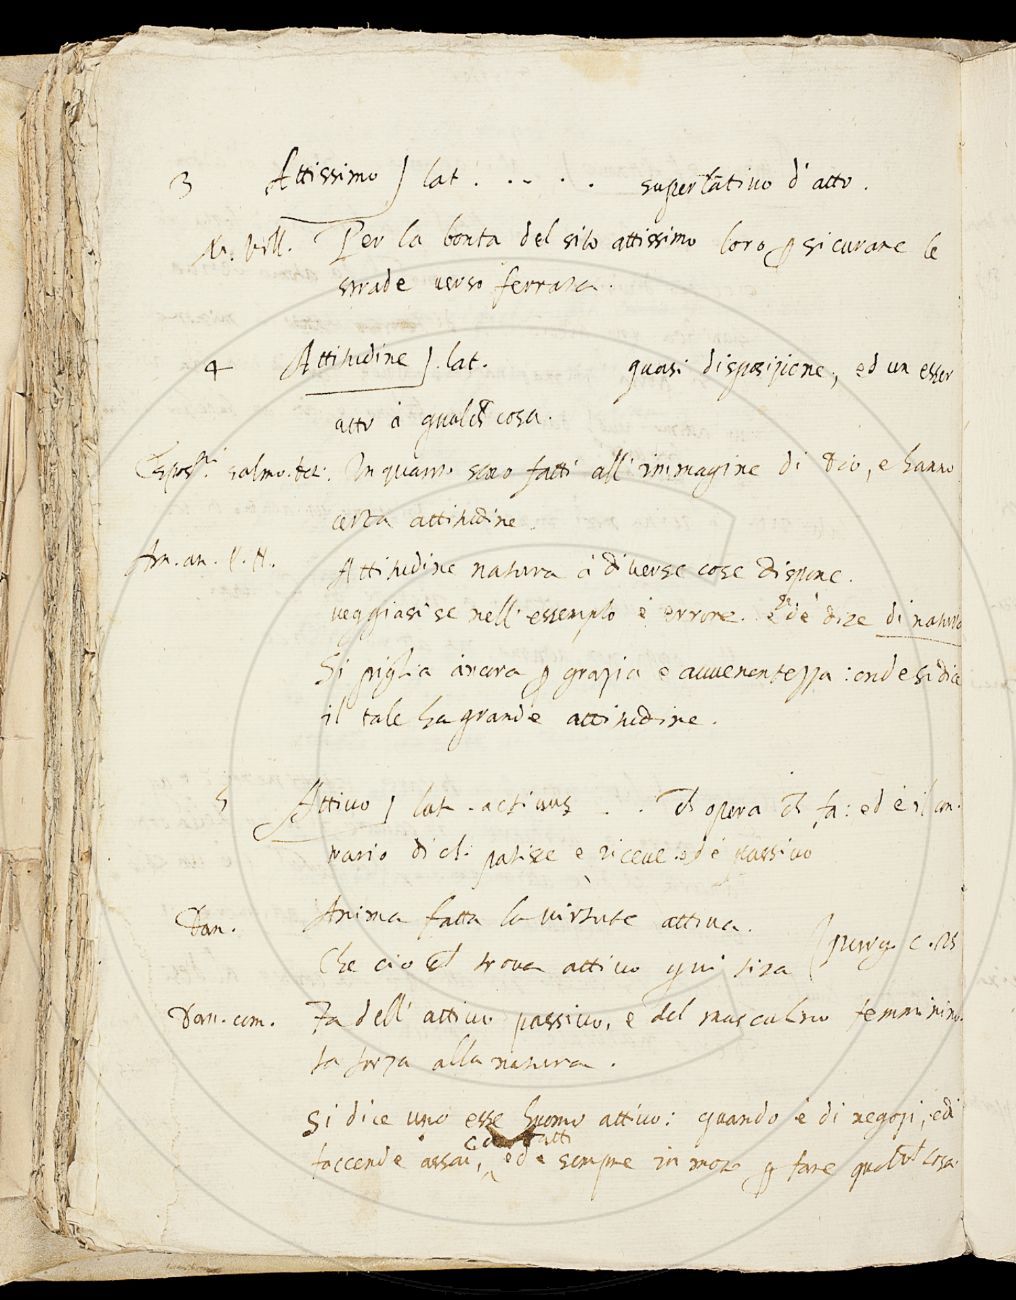 3 Attissimo ] lat . . . . . superlativo d'atto.
M. Vill. Per la bonta del sito attissimo loro p sicurare le
strade verso ferrara.
4 Attitudine ]. lat. quasi disposizione, ed un esser
atto à qualch cosa.
Espos.ni salmo. In quanto sono fatti all'immagine di Dio, e hanno
certa attitudine.
Attitudine natura à diverse cose dispone.
veggiasi se nell'essemplo è errore. e de dire di natura
Si piglia ancora p grazia e avvenentezza: onde si dice
il tale ha grande attitudine.
5 Attivo ] lat. activus . . ch opera ch fa: ed è il con-
trario di ch patisce e riceve ed è passivo
Dan. Anima fatta la virtute attiva.
Che ciò ch trova attivo quivi tira (purg. c. 25
Dan. com. Fa dell'attivo passivo, e del masculino femminino.
fa forza alla natura.
Si dice uno esse huomo attivo: quando è di negozi, e di
faccende assai, ed e sempre in moto p fare qualch cosa.